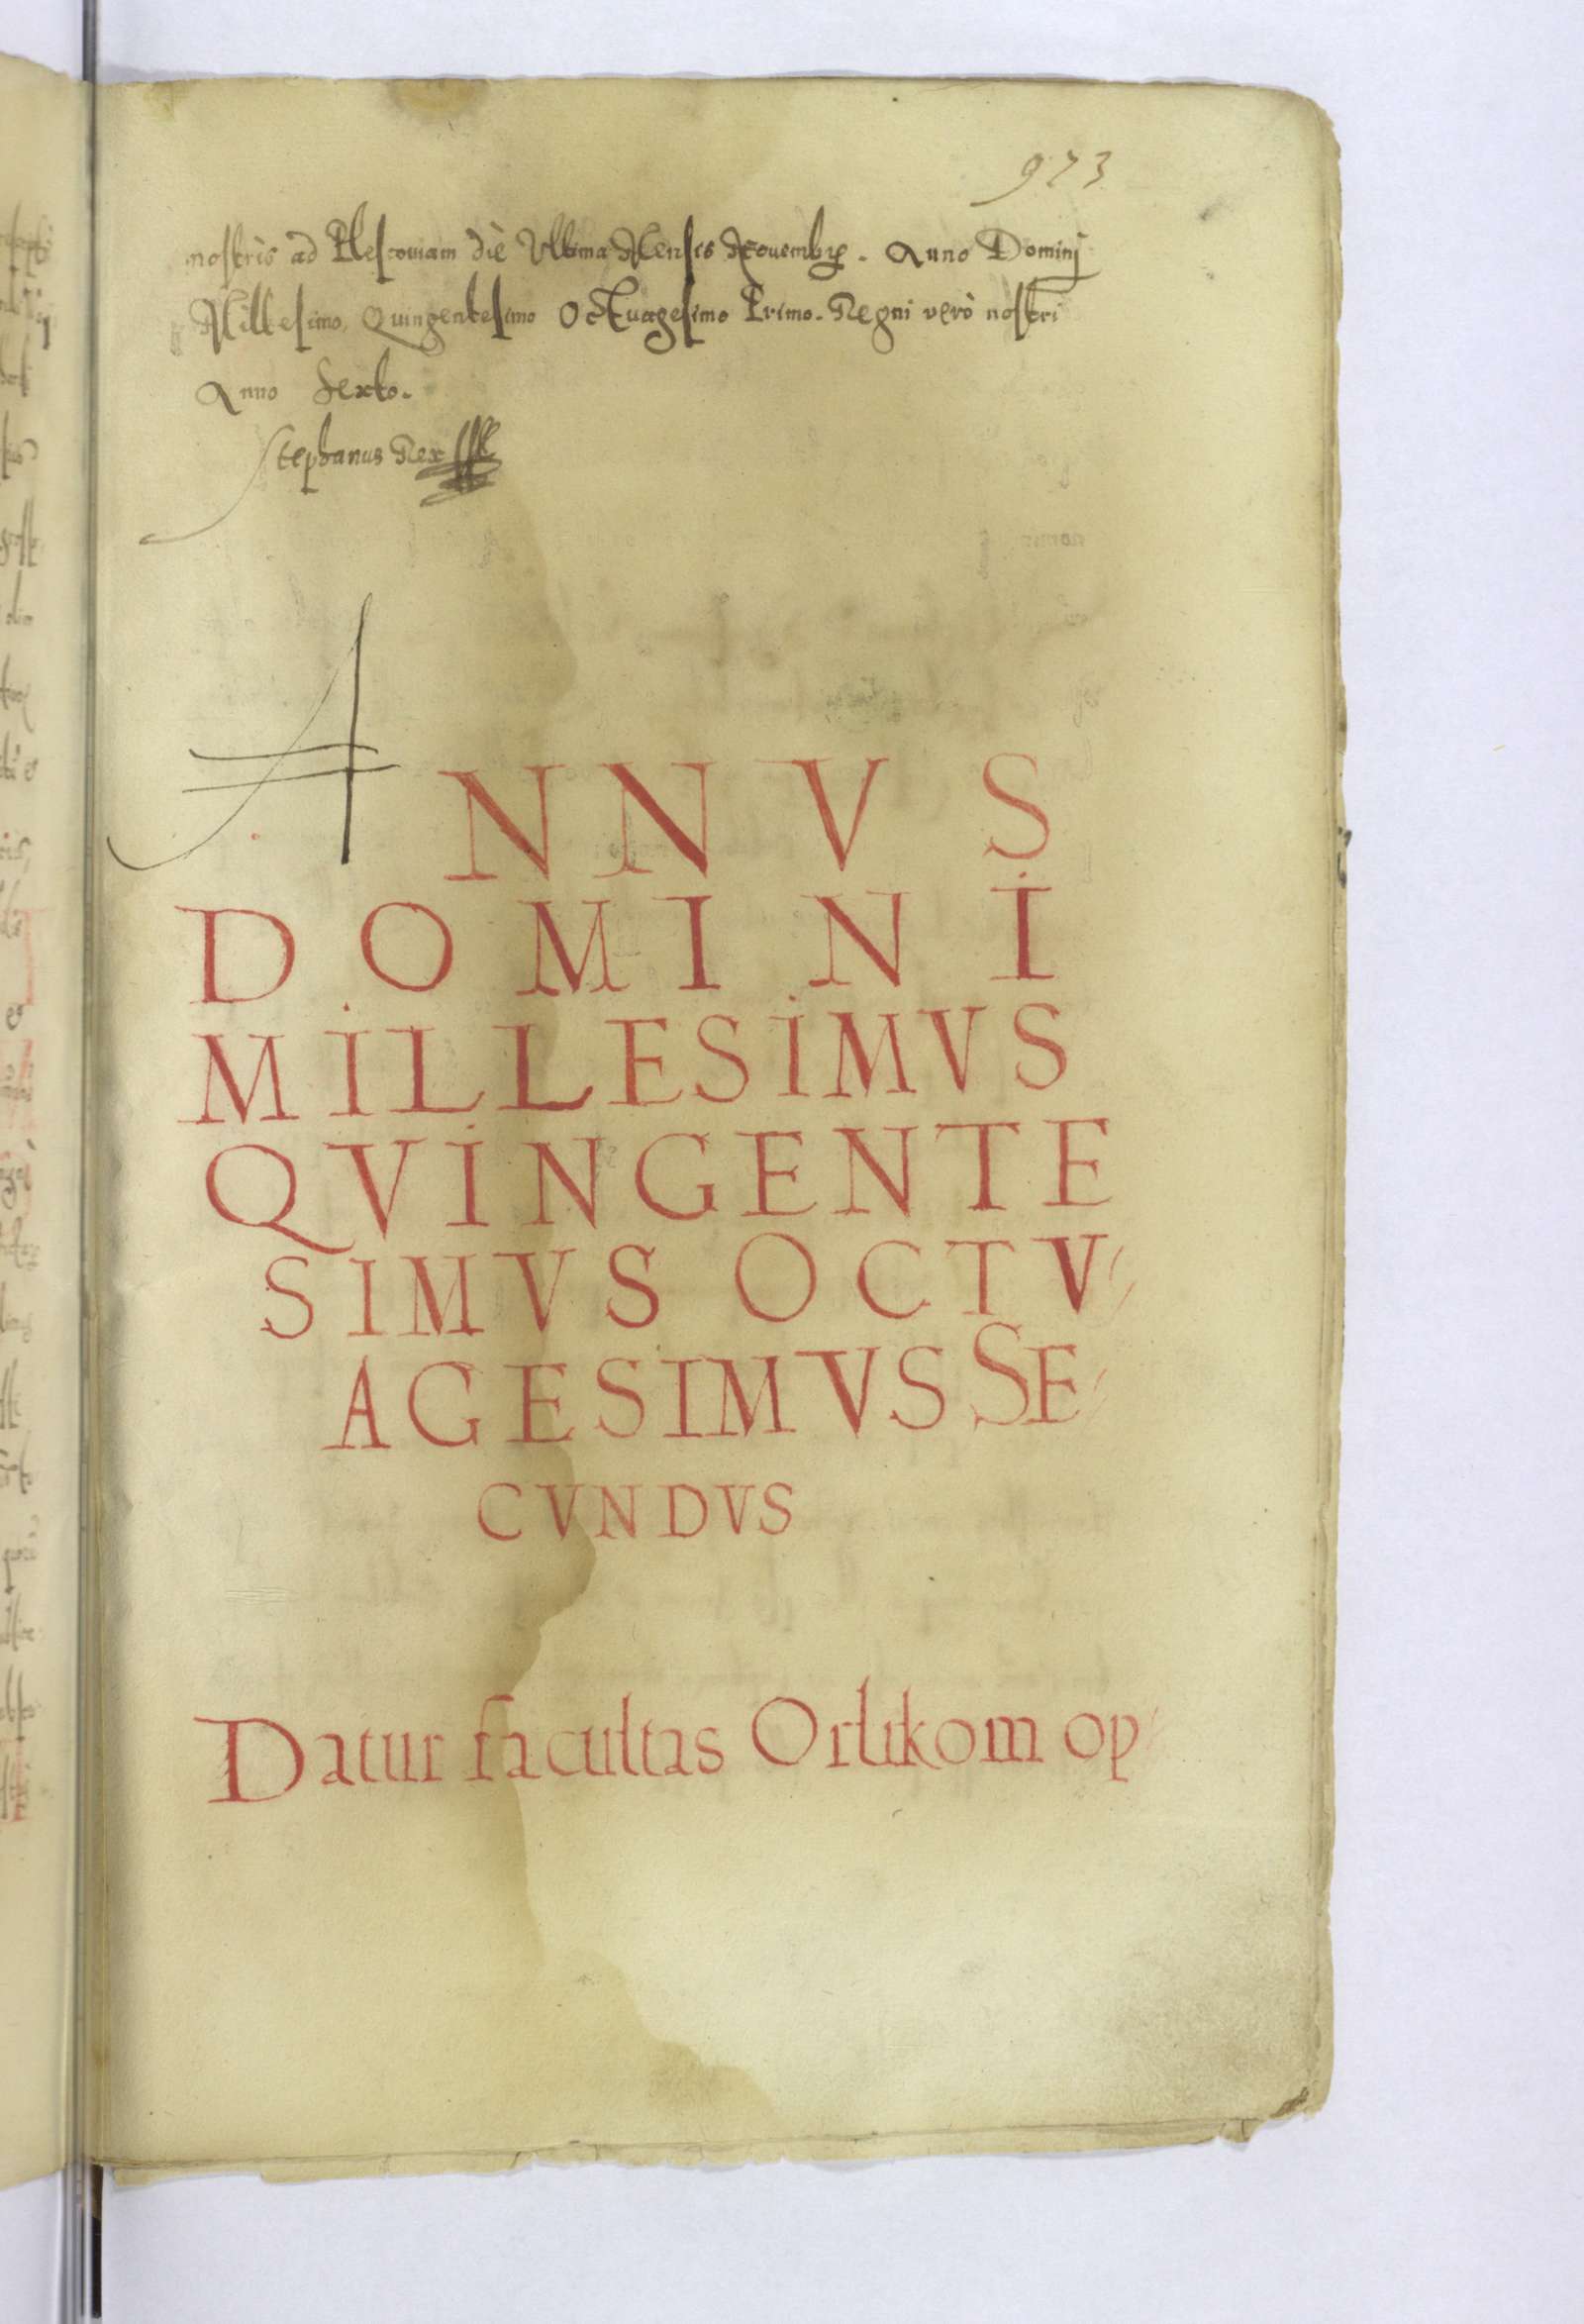 973
nostris ad Plescouiam diè Vltima Mensis Nouembrꝭ. Anno Dominj
Millesimo, Quingentesimo Octuagesimo Primo. Regni verò nostri
Anno Sexto.
Stephanus Rex
ANNVS
DOMINI
MILLESIMVS
QVINGENTE
SIMVS OCTV
AGESIMVS SE
CVNDVS
Datur facultas Orlikom op